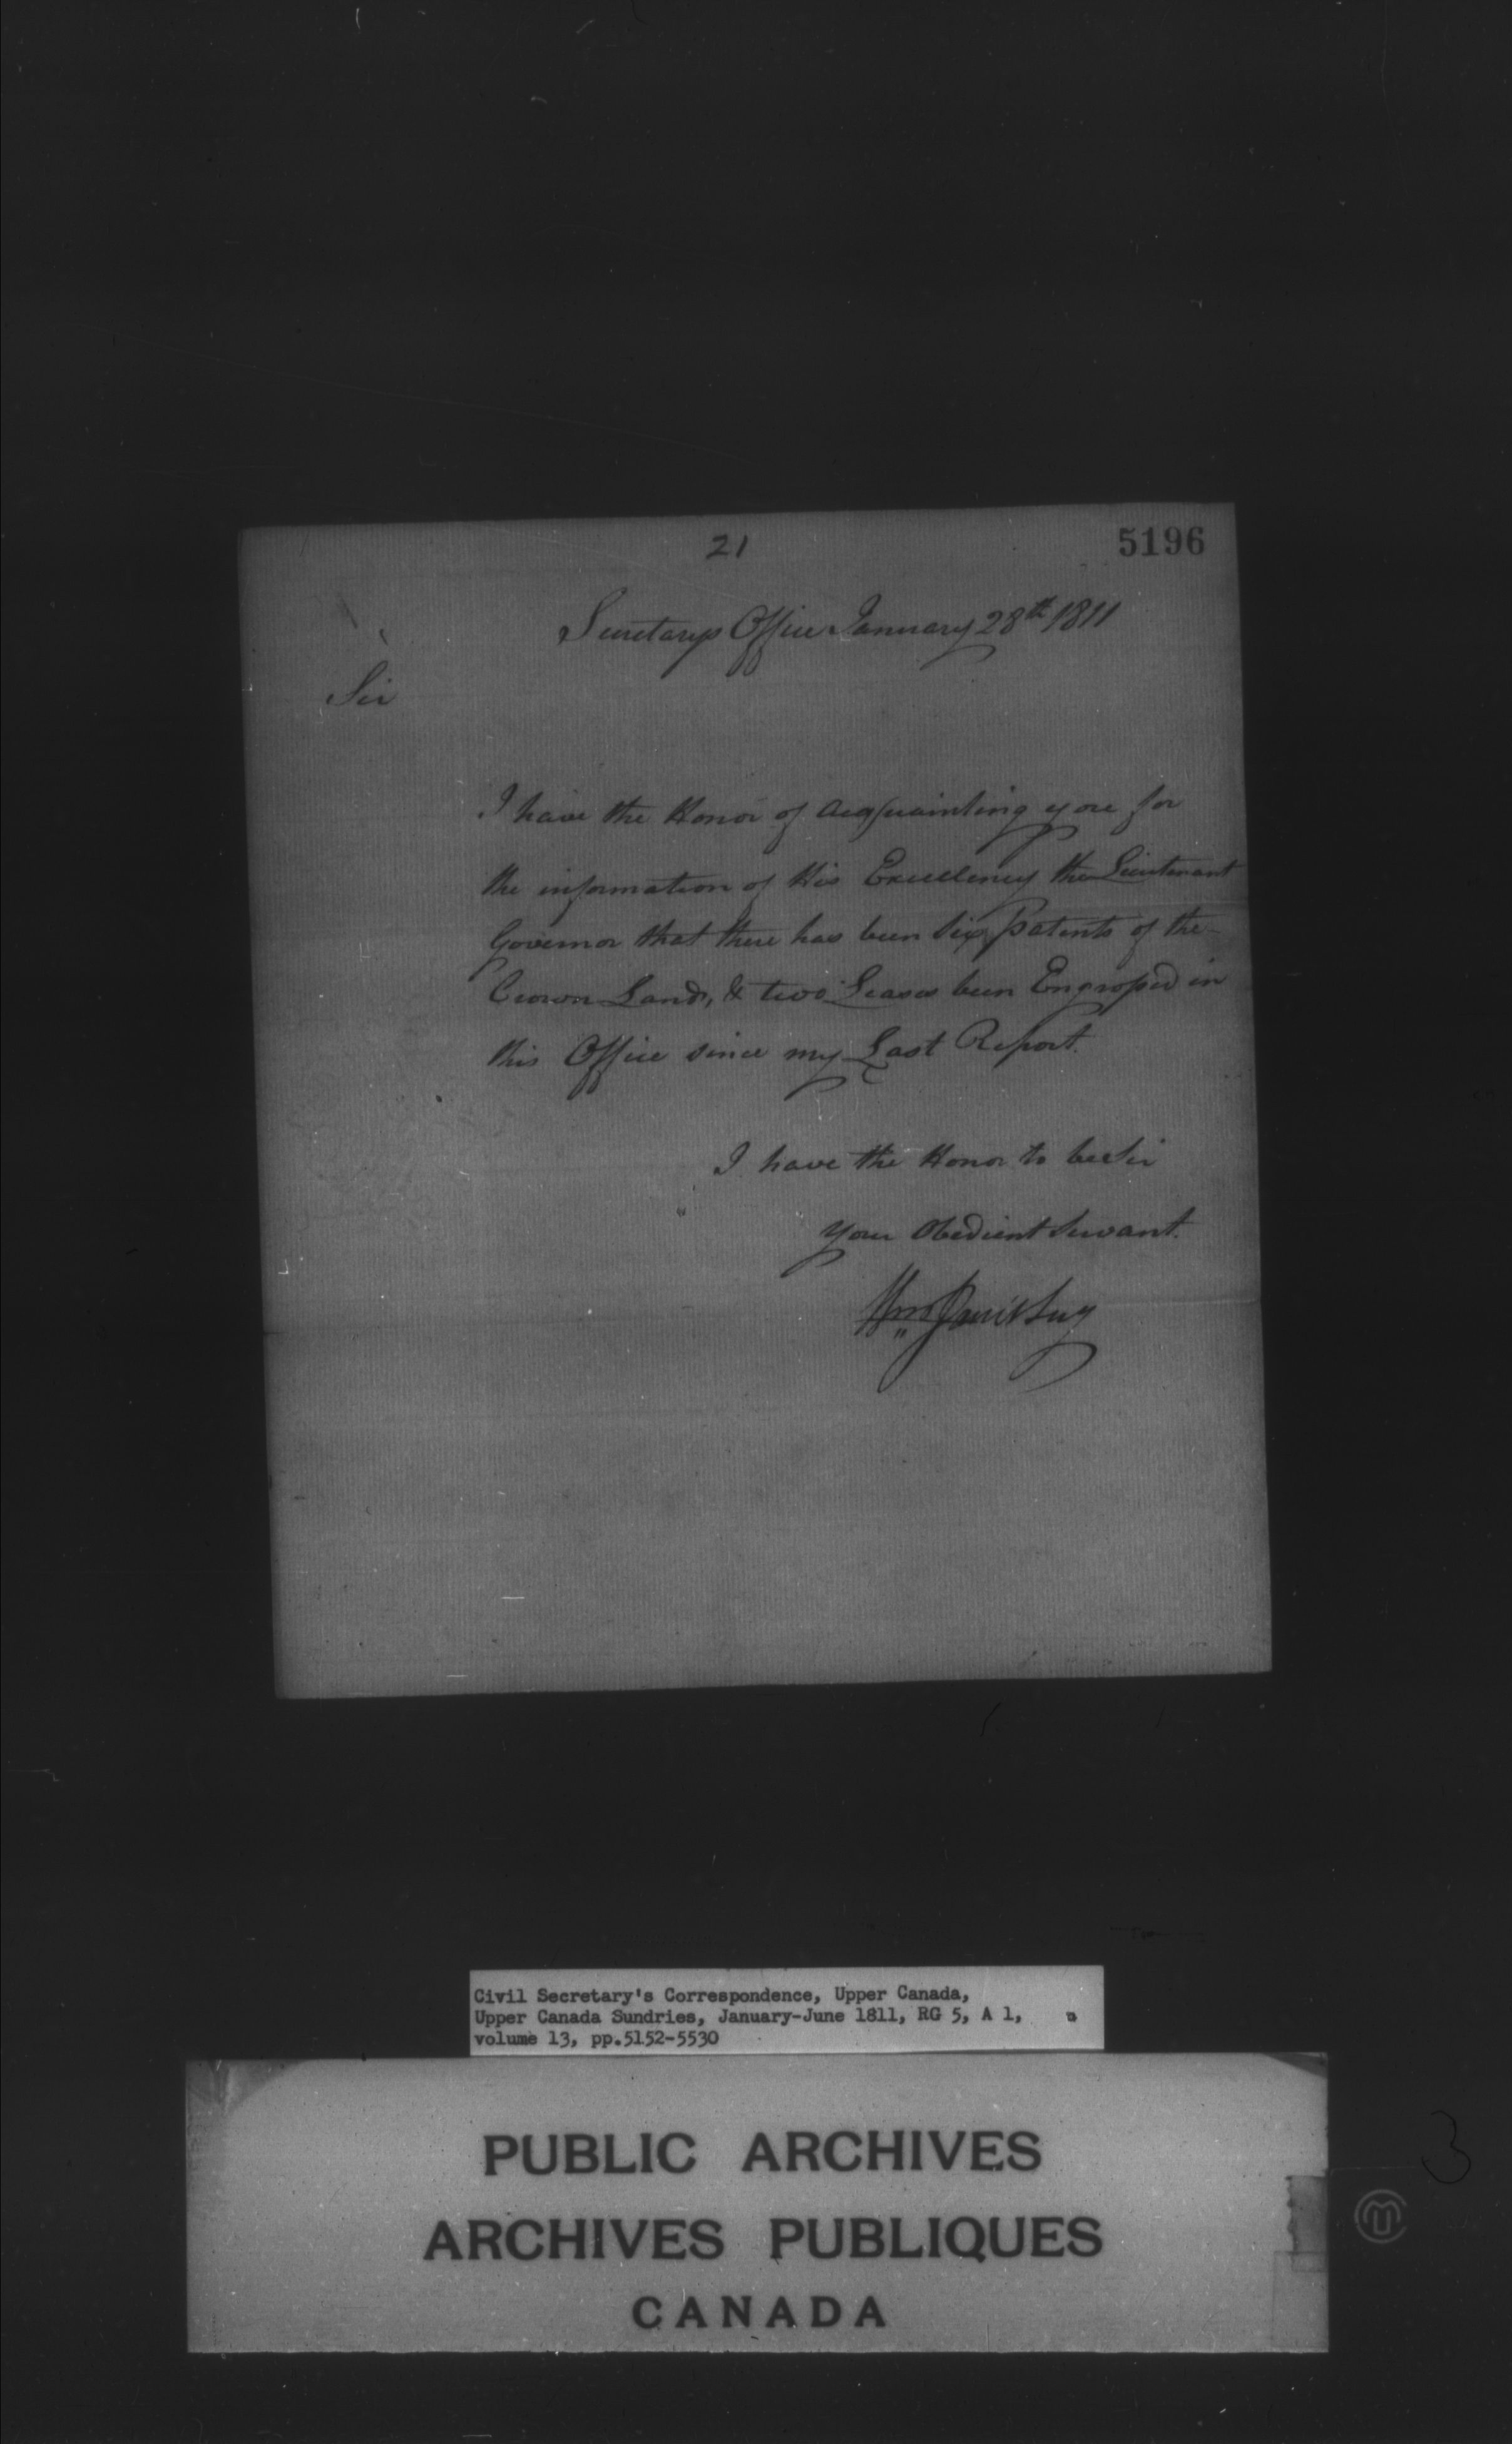 21
5196
Secretarys Office January 28th 1811
Sir
I have the Honor of acquainting you for
the information of His Excellency the Lieutenant
Governor that there has been six Patents of the
Crown Land, & two Leases been Engrossed in
this Office since my Last Report.
I have the Honor to be Sir
your Obedient Servant.
Wm Jarvis Secy
Civil Secretary's Correspondence, Upper Canada,
Upper Canada Sundries, January-June 1811, RG 5, A 1,
volume 13, pp.5152-5530
PUBLIC ARCHIVES
ARCHIVES PUBLIQUES
CANADA
3